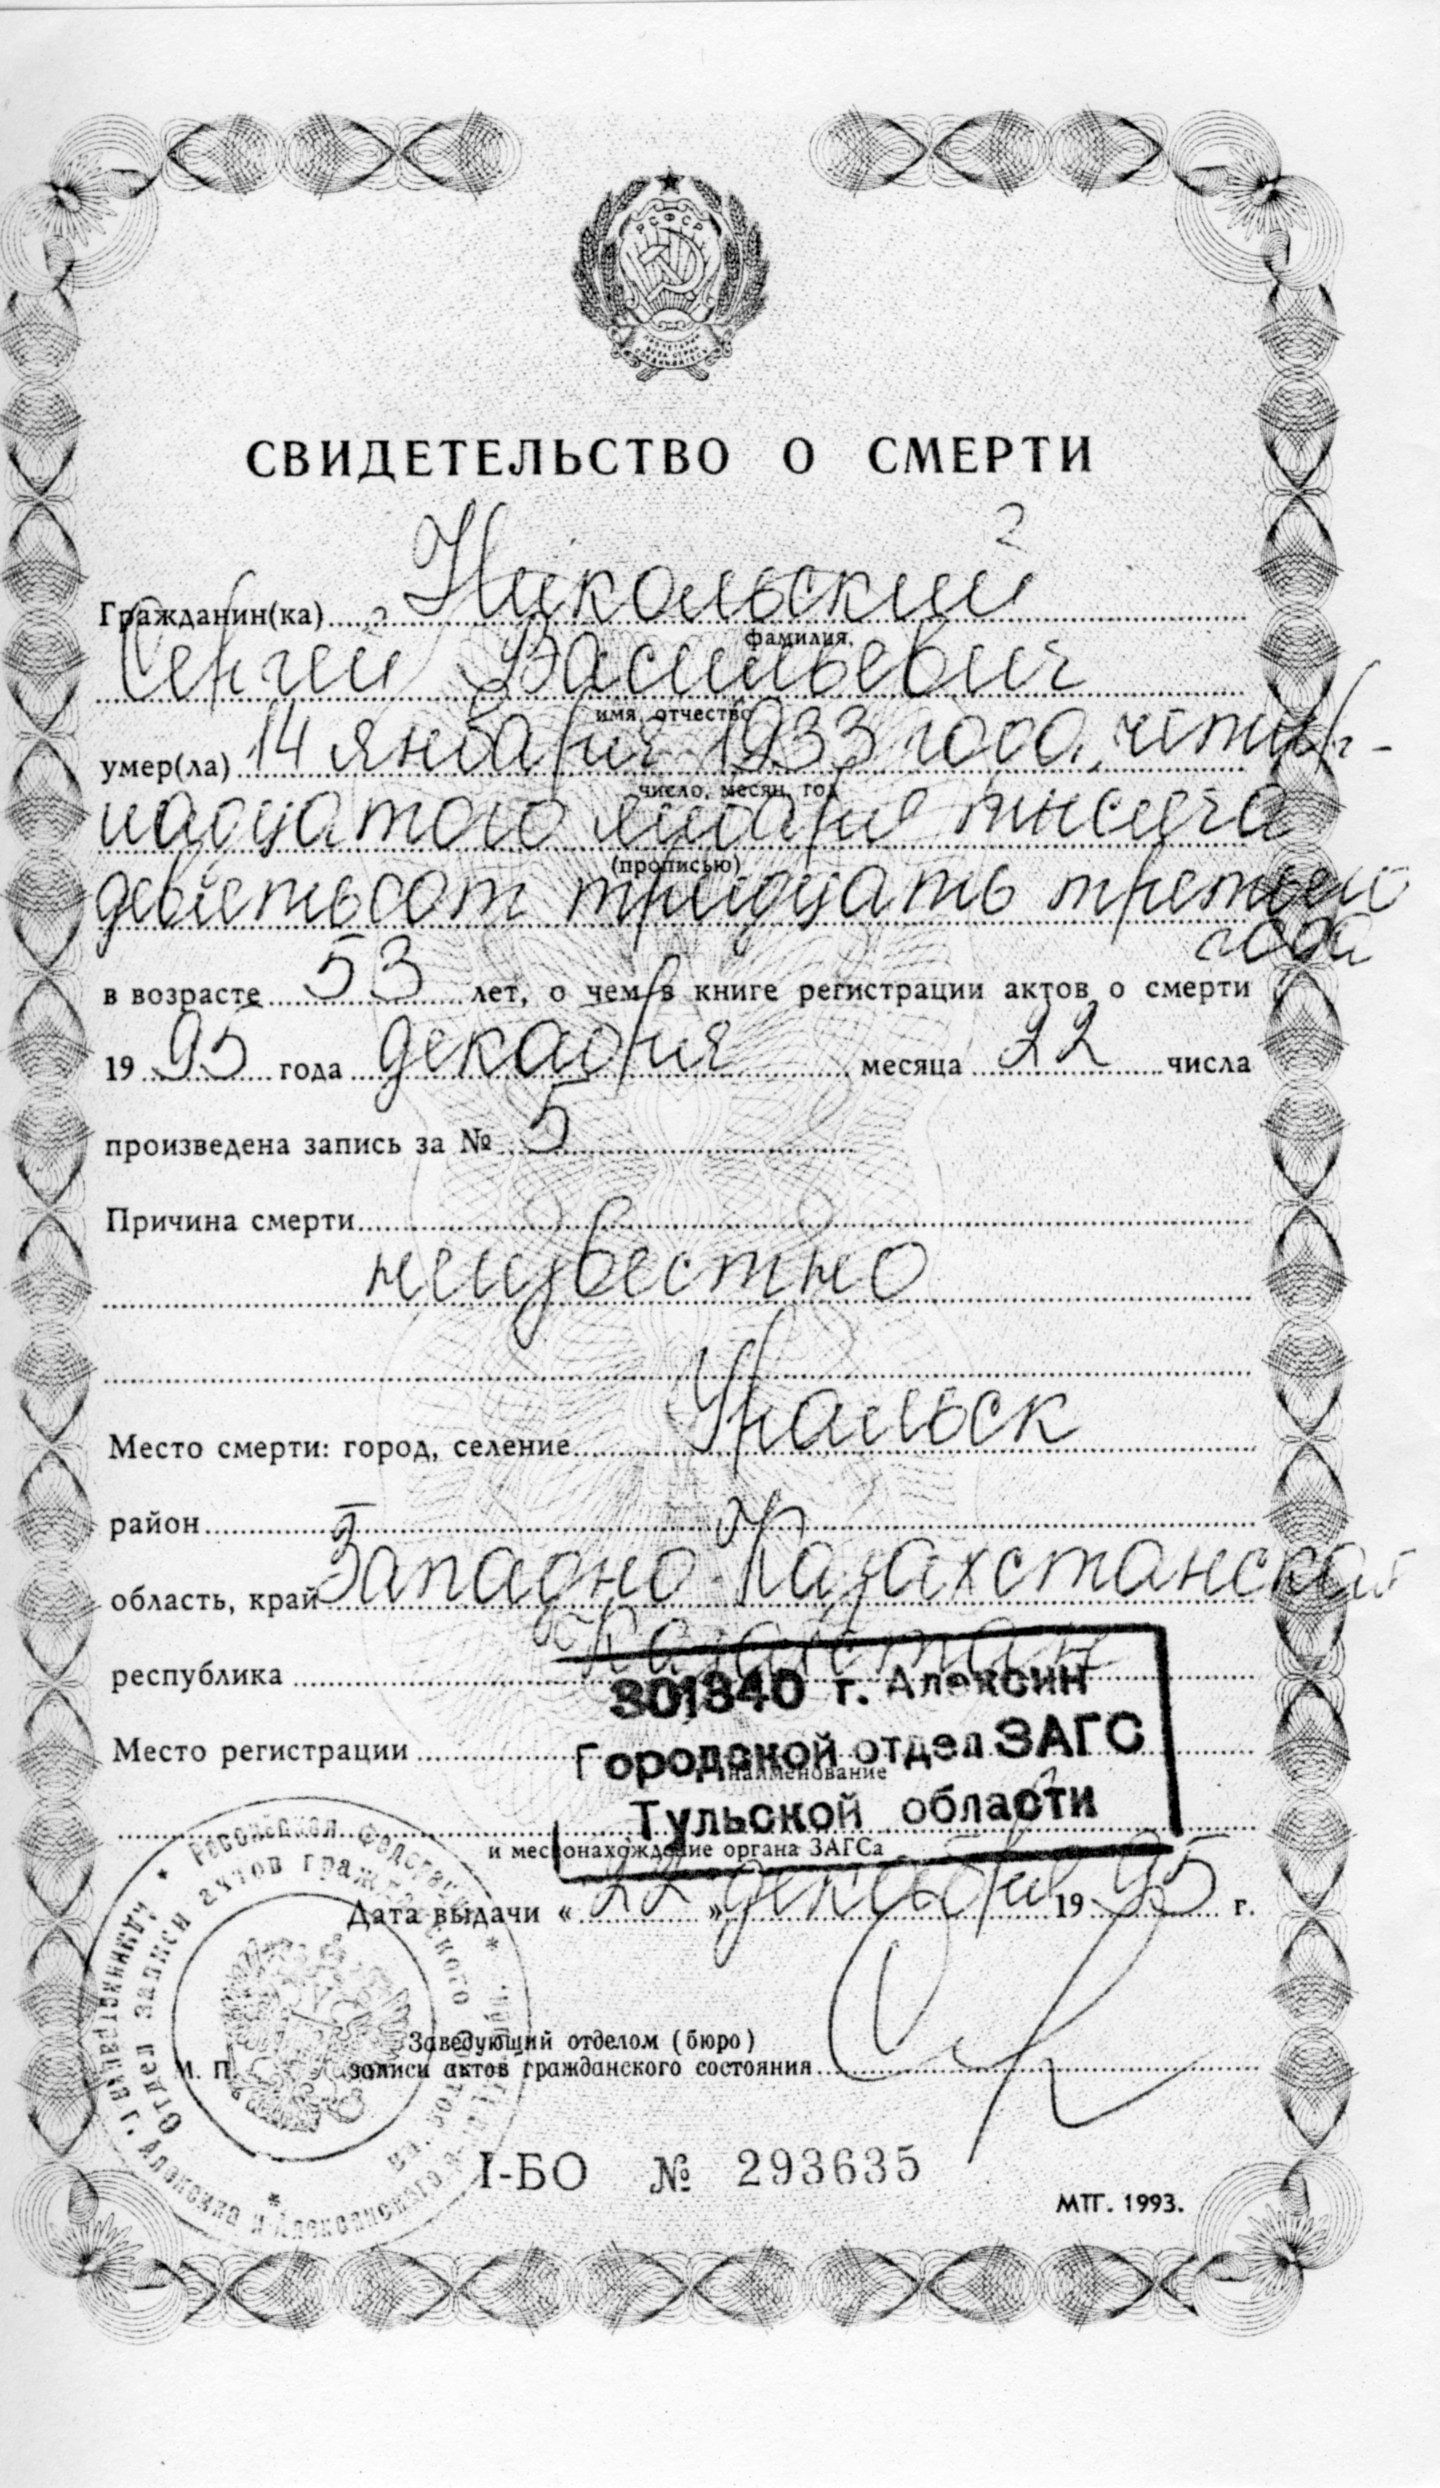 РСФСР
СВИДЕТЕЛЬСТВО О СМЕРТИ
Гражданин(ка) Никольский
фамилия,
Сергей Васильевич
имя, отчество
умер(ла) 14 января 1933 года, четыр-
число, месяц, год
надцатого января тысяча
(прописью)
девятьсот тридцать третьего
года
в возрасте 53 лет, о чем в книге регистрации актов о смерти
19 95 года декабря месяца 22 числа
произведена запись за № 5
Причина смерти
неизвестно
Место смерти: город, селение Уральск
район
область, край Западно-Казахстанская
республика Казахстан
301340 г. Алексин
Место регистрации Городской отдел ЗАГС
наименование
Тульской области
и местонахождение органа ЗАГСа
Дата выдачи « 22 » декабря 19 95 г.
Заведующий отделом (бюро)
М. П. записи актов гражданского состояния
Российская Федерация
Отдел записи актов гражданского
I-БО № 293635
МТГ. 1993.